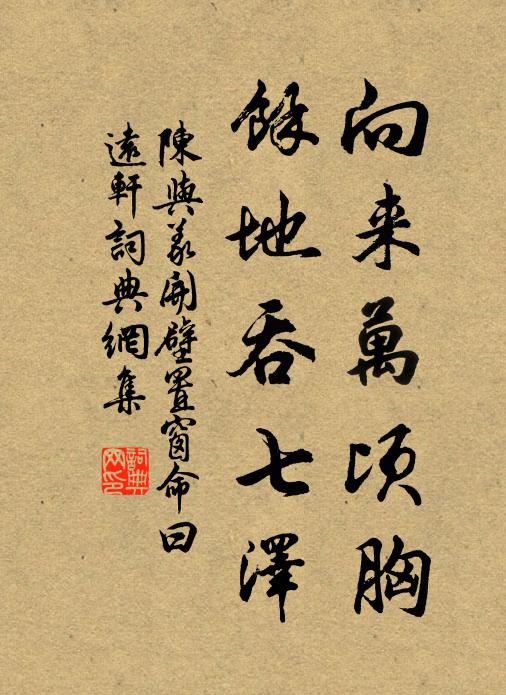 向来萬頃胸
餘地吞七澤
陳與義開壁置窗命曰
遠軒詞典網集
詞典网印